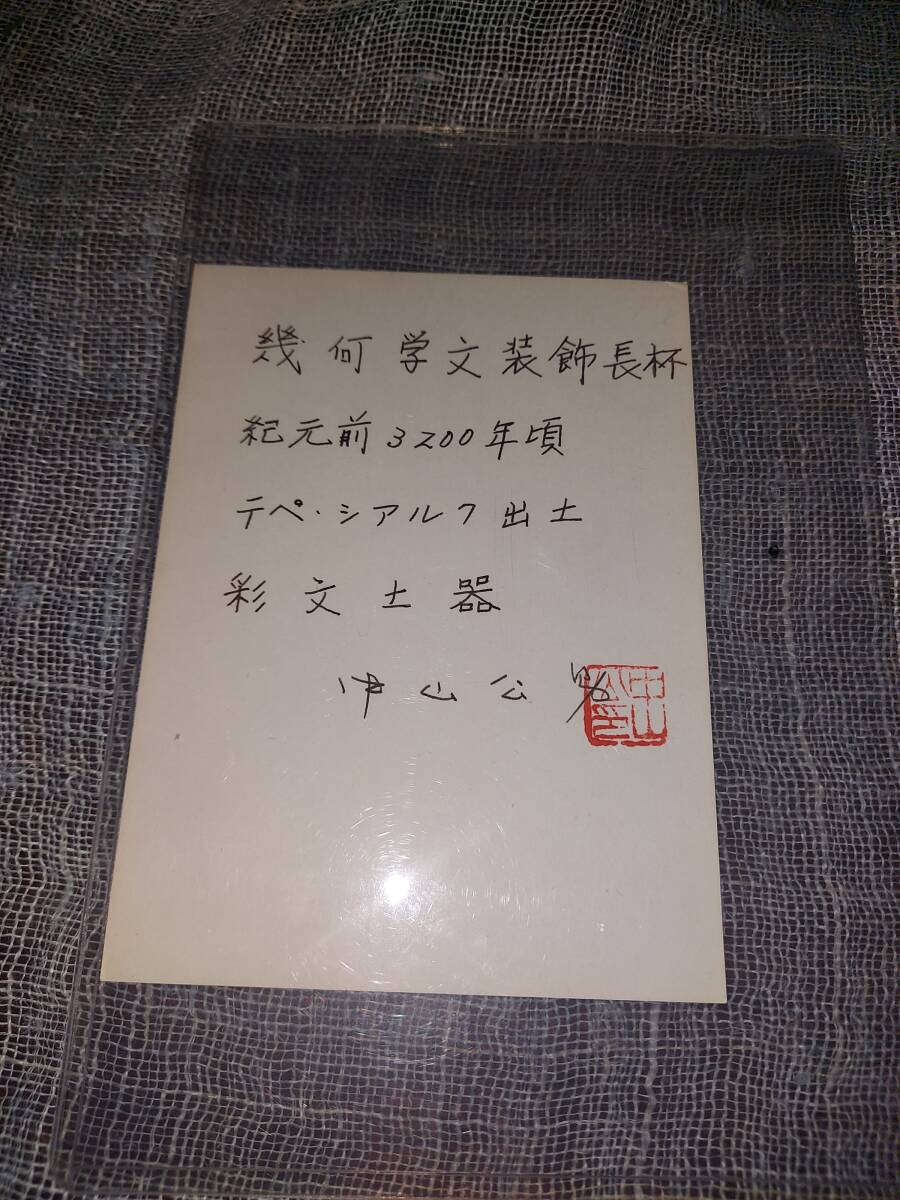 幾何学文装飾長杯
紀元前3200年頃
テペ・シアルク出土
彩文土器
中山公男